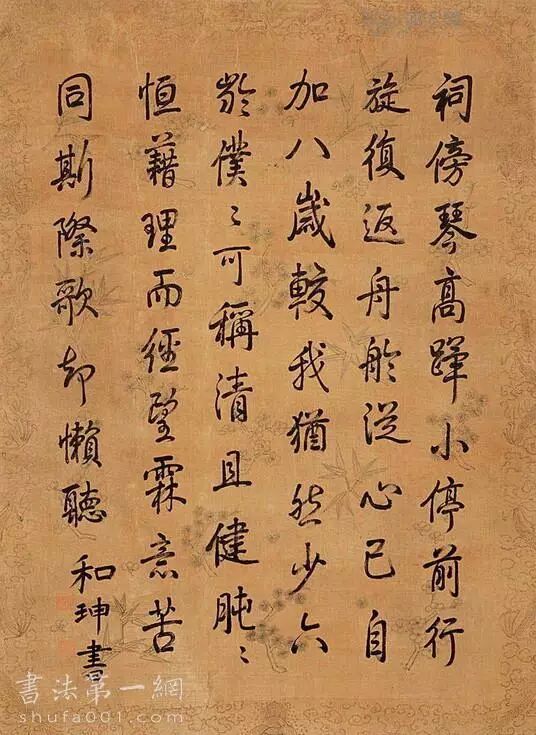 祠傍琴高蹕小停前行
旋復返舟舲從心已自
加八歲較我猶然少六
齡僕僕可稱清且健肫肫
恒藉理而經望霖意苦
同斯際歌却懶聽
和珅書
書法第一網
shufa001.com